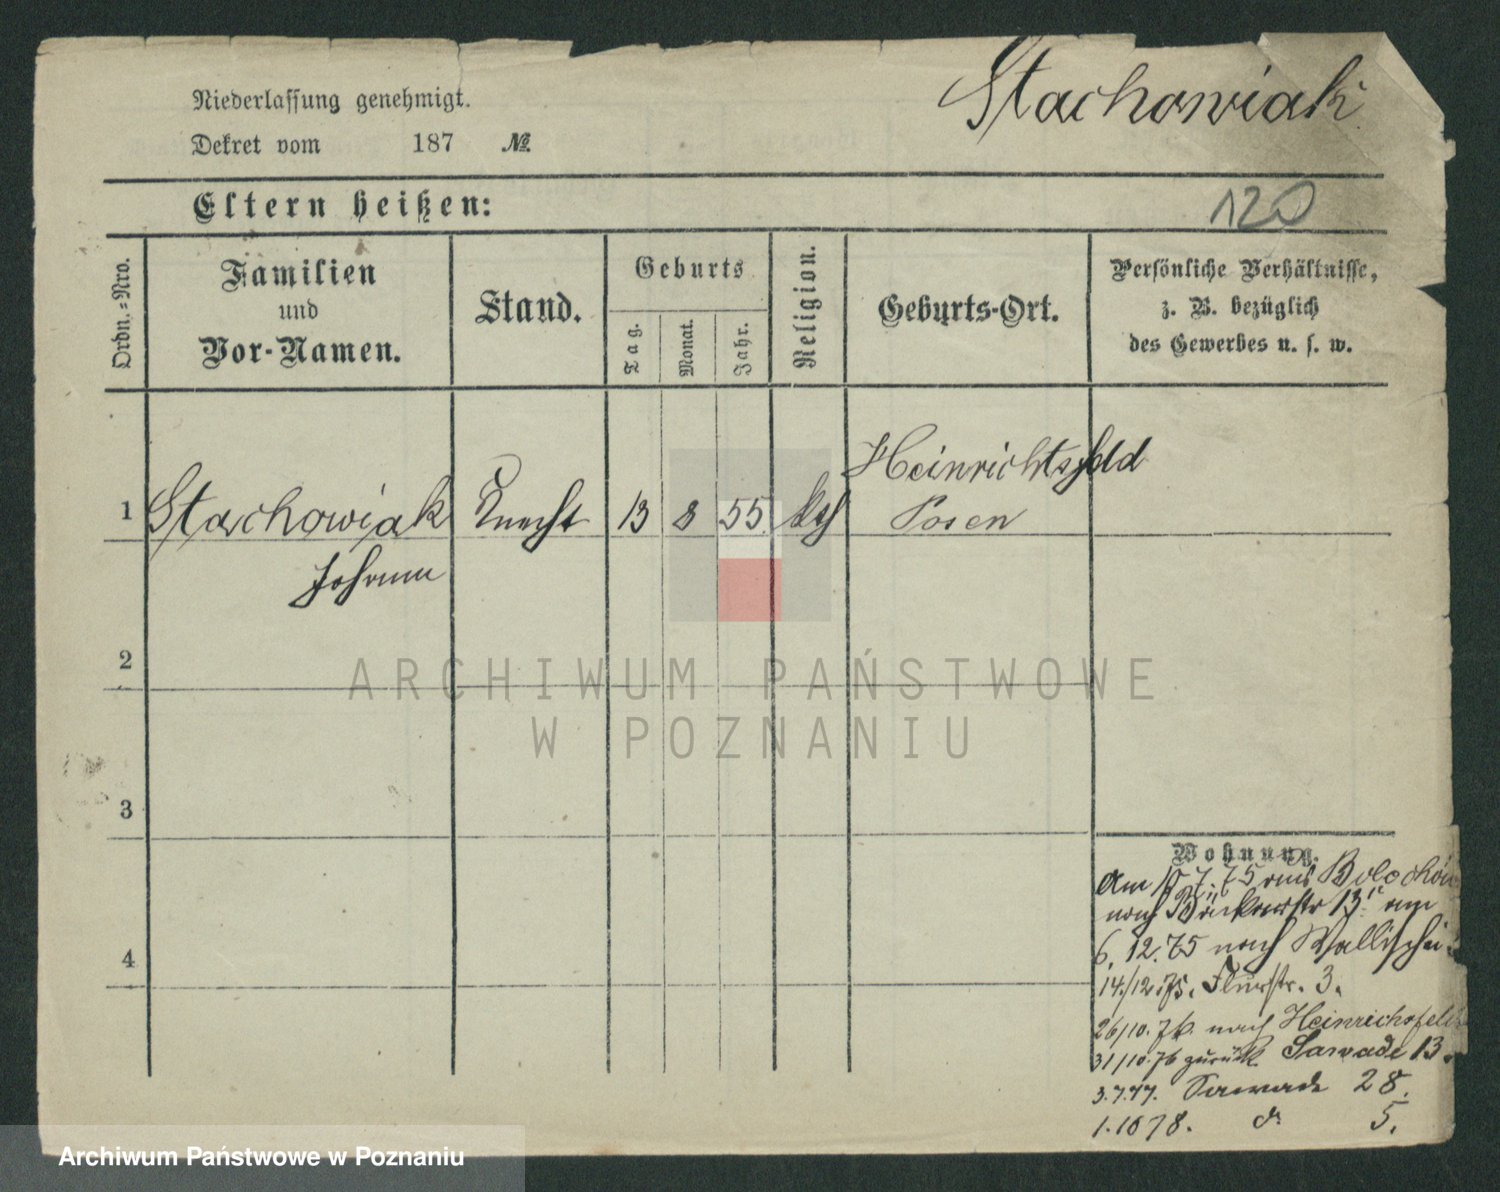 Stachowiak
Niederlassung genehmigt.
Dekret vom 187 №
Eltern heißen:
120
Ordn.-Nro.
Familien
und
Vor-Namen.
Stand.
Geburts
Tag.
Monat.
Jahr.
Religion.
Geburts-Ort.
Persönliche Verhältnisse,
z. B. bezüglich
des Gewerbes u. s. w.
Heinrichtsfeld
1 Stachowiak Knecht 13 8 55. kth Posen
Johann
2
ARCHIWUM PAŃSTWOWE
W POZNANIU
3
Wohnung.
Am 7.75 aus
nach 13 am
4
6. 12. 75 nach Wallischei
14./12.75. Flurstr. 3.
26/10.76. nach Heinrichsfeld
31/10.76 zurück Sawade 13.
3.7.77. Sawade 28.
1.1078. d. 5.
Archiwum Państwowe w Poznaniu